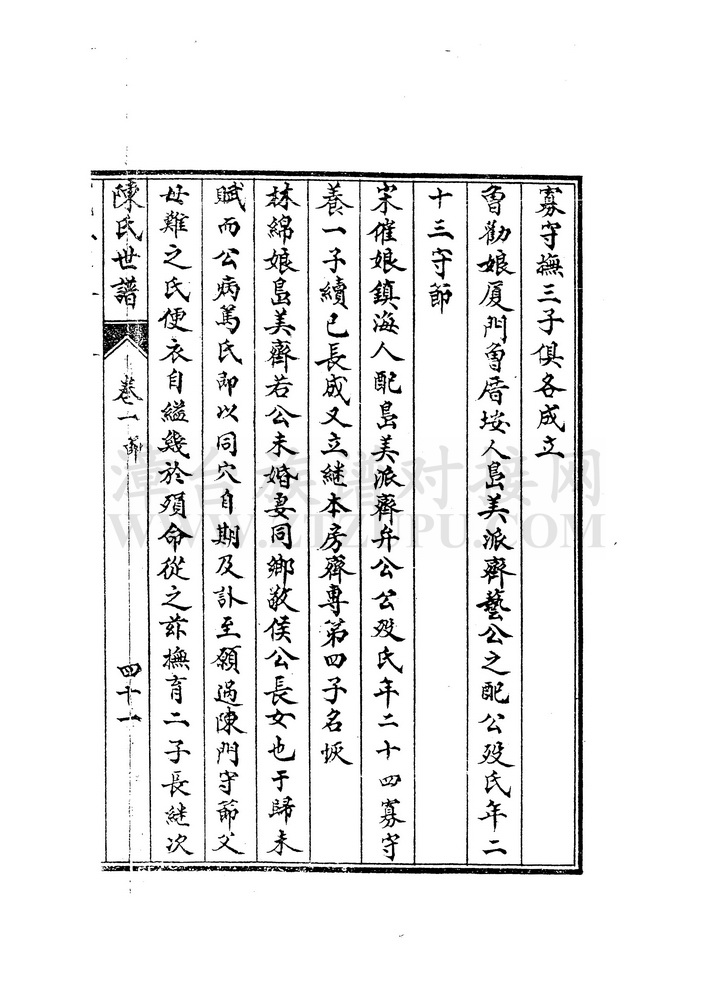 寡守撫三子俱各成立
魯勸娘厦門魯厝垵人島美派齊藝公之配公殁氏年二
十三守節
宋催娘鎮海人配島美派齊弁公公殁氏年二十四寡守
養一子續已長成又立継本房齊專第四子名恢
林綿娘島美齊若公未婚妻同鄉敬侯公長女也于歸未
賦而公病篤氏即以同穴自期及訃至願過陳門守節父
母難之氏便衣自縊幾於殞命從之兹撫育二子長継次
陳氏世譜 卷一 節 四十一
漳台族谱对接网
WWW.ZTZUPU.COM